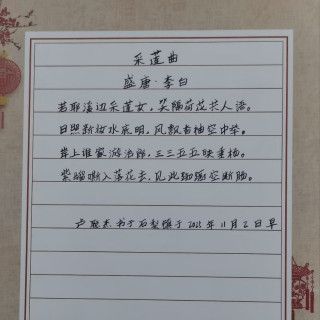 采莲曲
盛唐·李白
若耶溪边采莲女，笑隔荷花共人语。
日照新妆水底明，风飘香袖空中举。
岸上谁家游冶郎，三三五五映垂杨。
紫骝嘶入落花去，见此踟蹰空断肠。
卢 杰书于石梨镇于2025年11月2日早